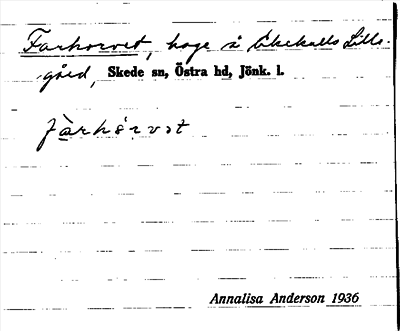 Farhorvet, hage å Ekekulls Lilla-
gård, Skede sn, Östra hd, Jönk. l.
Annalisa Anderson 1936